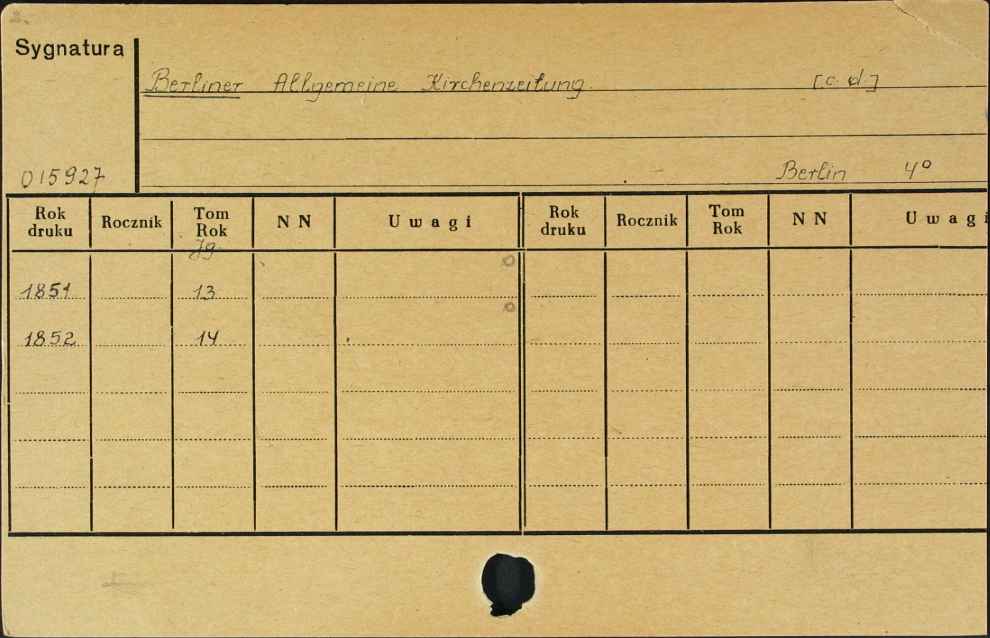 2.
Sygnatura
Berliner Allgemeine Kirchenzeitung. [c. d.]
015927
Berlin 4°
Rok druku Rocznik Tom Rok N N Uwagi Rok druku Rocznik Tom Rok N N Uwagi
Jg.
1851 13 o
1852 14 o